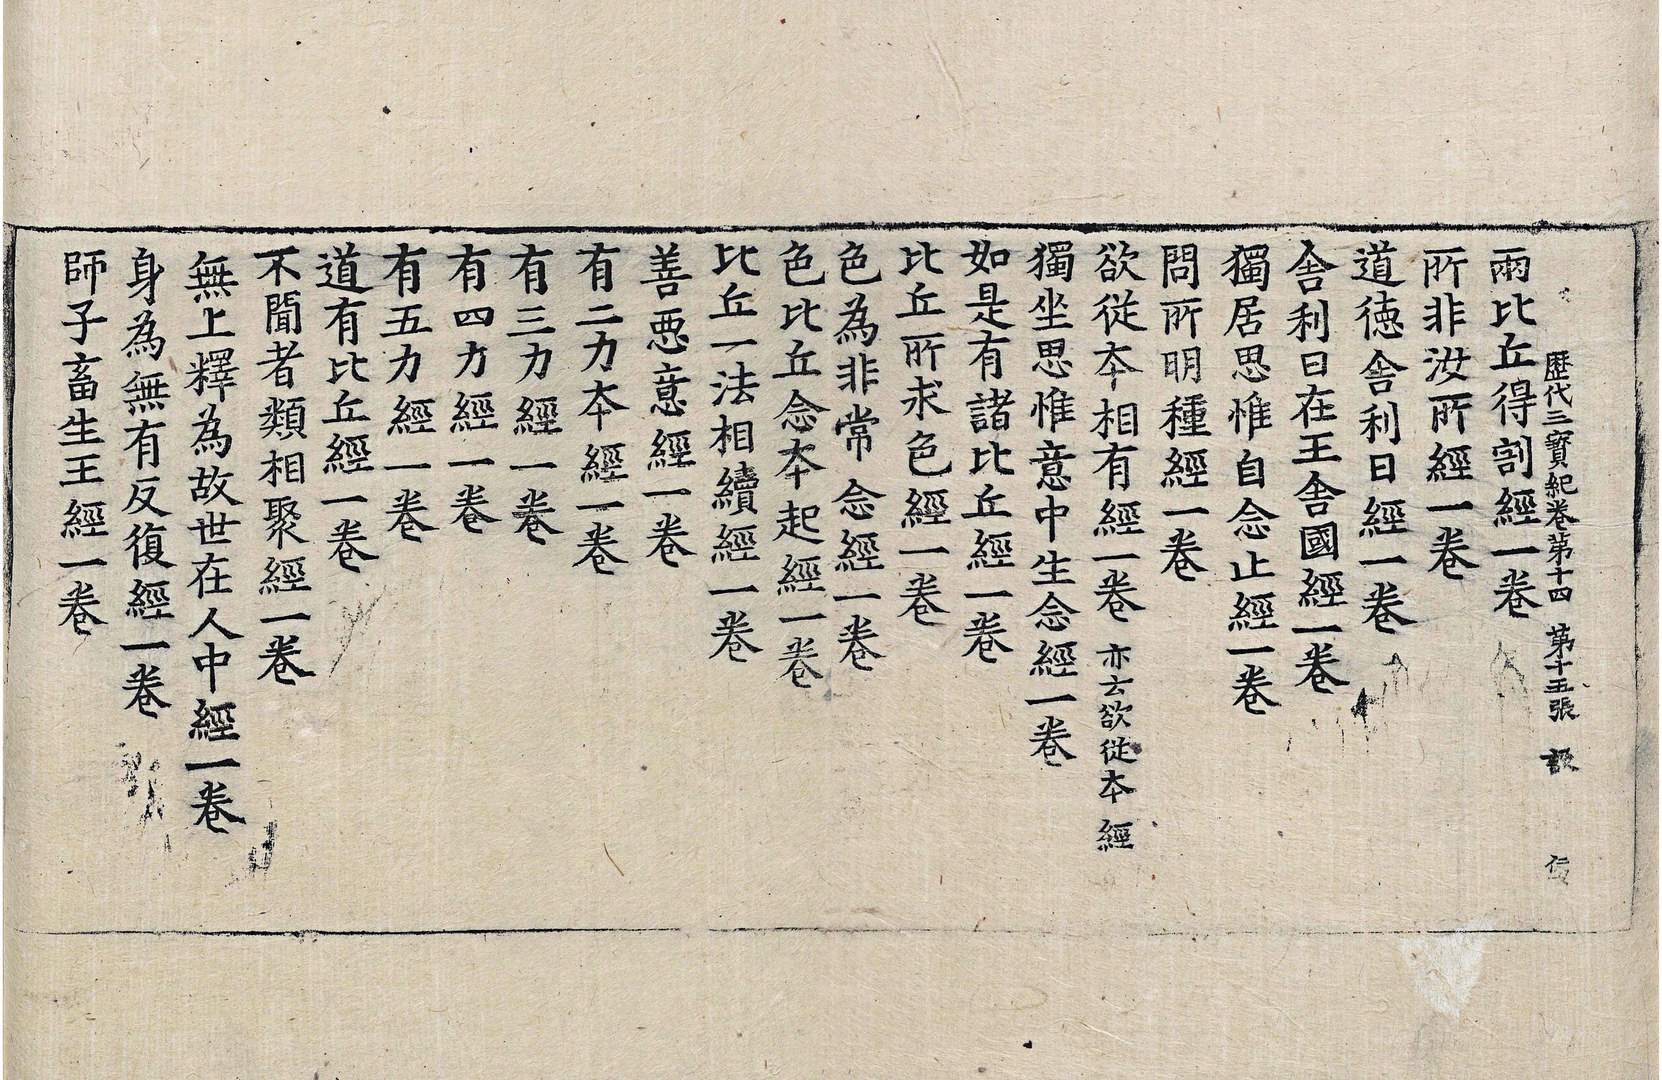 歷代三寶紀卷第十四 第十五張 仁
兩比丘得割經一卷
所非汝所經一卷
道德舎利日經一卷
舎利日在王舎國經一卷
獨居思惟自念止經一卷
問所明種經一卷
欲從本相有經一卷 亦云欲從本經
獨坐思惟意中生念經一卷
如是有諸比丘經一卷
比丘所求色經一卷
色為非常念經一卷
色比丘念本起經一卷
比丘一法相續經一卷
善惡意經一卷
有二力本經一卷
有三力經一卷
有四力經一卷
有五力經一卷
道有比丘經一卷
不聞者類相聚經一卷
無上釋為故世在人中經一卷
身為無有反復經一卷
師子畜生王經一卷